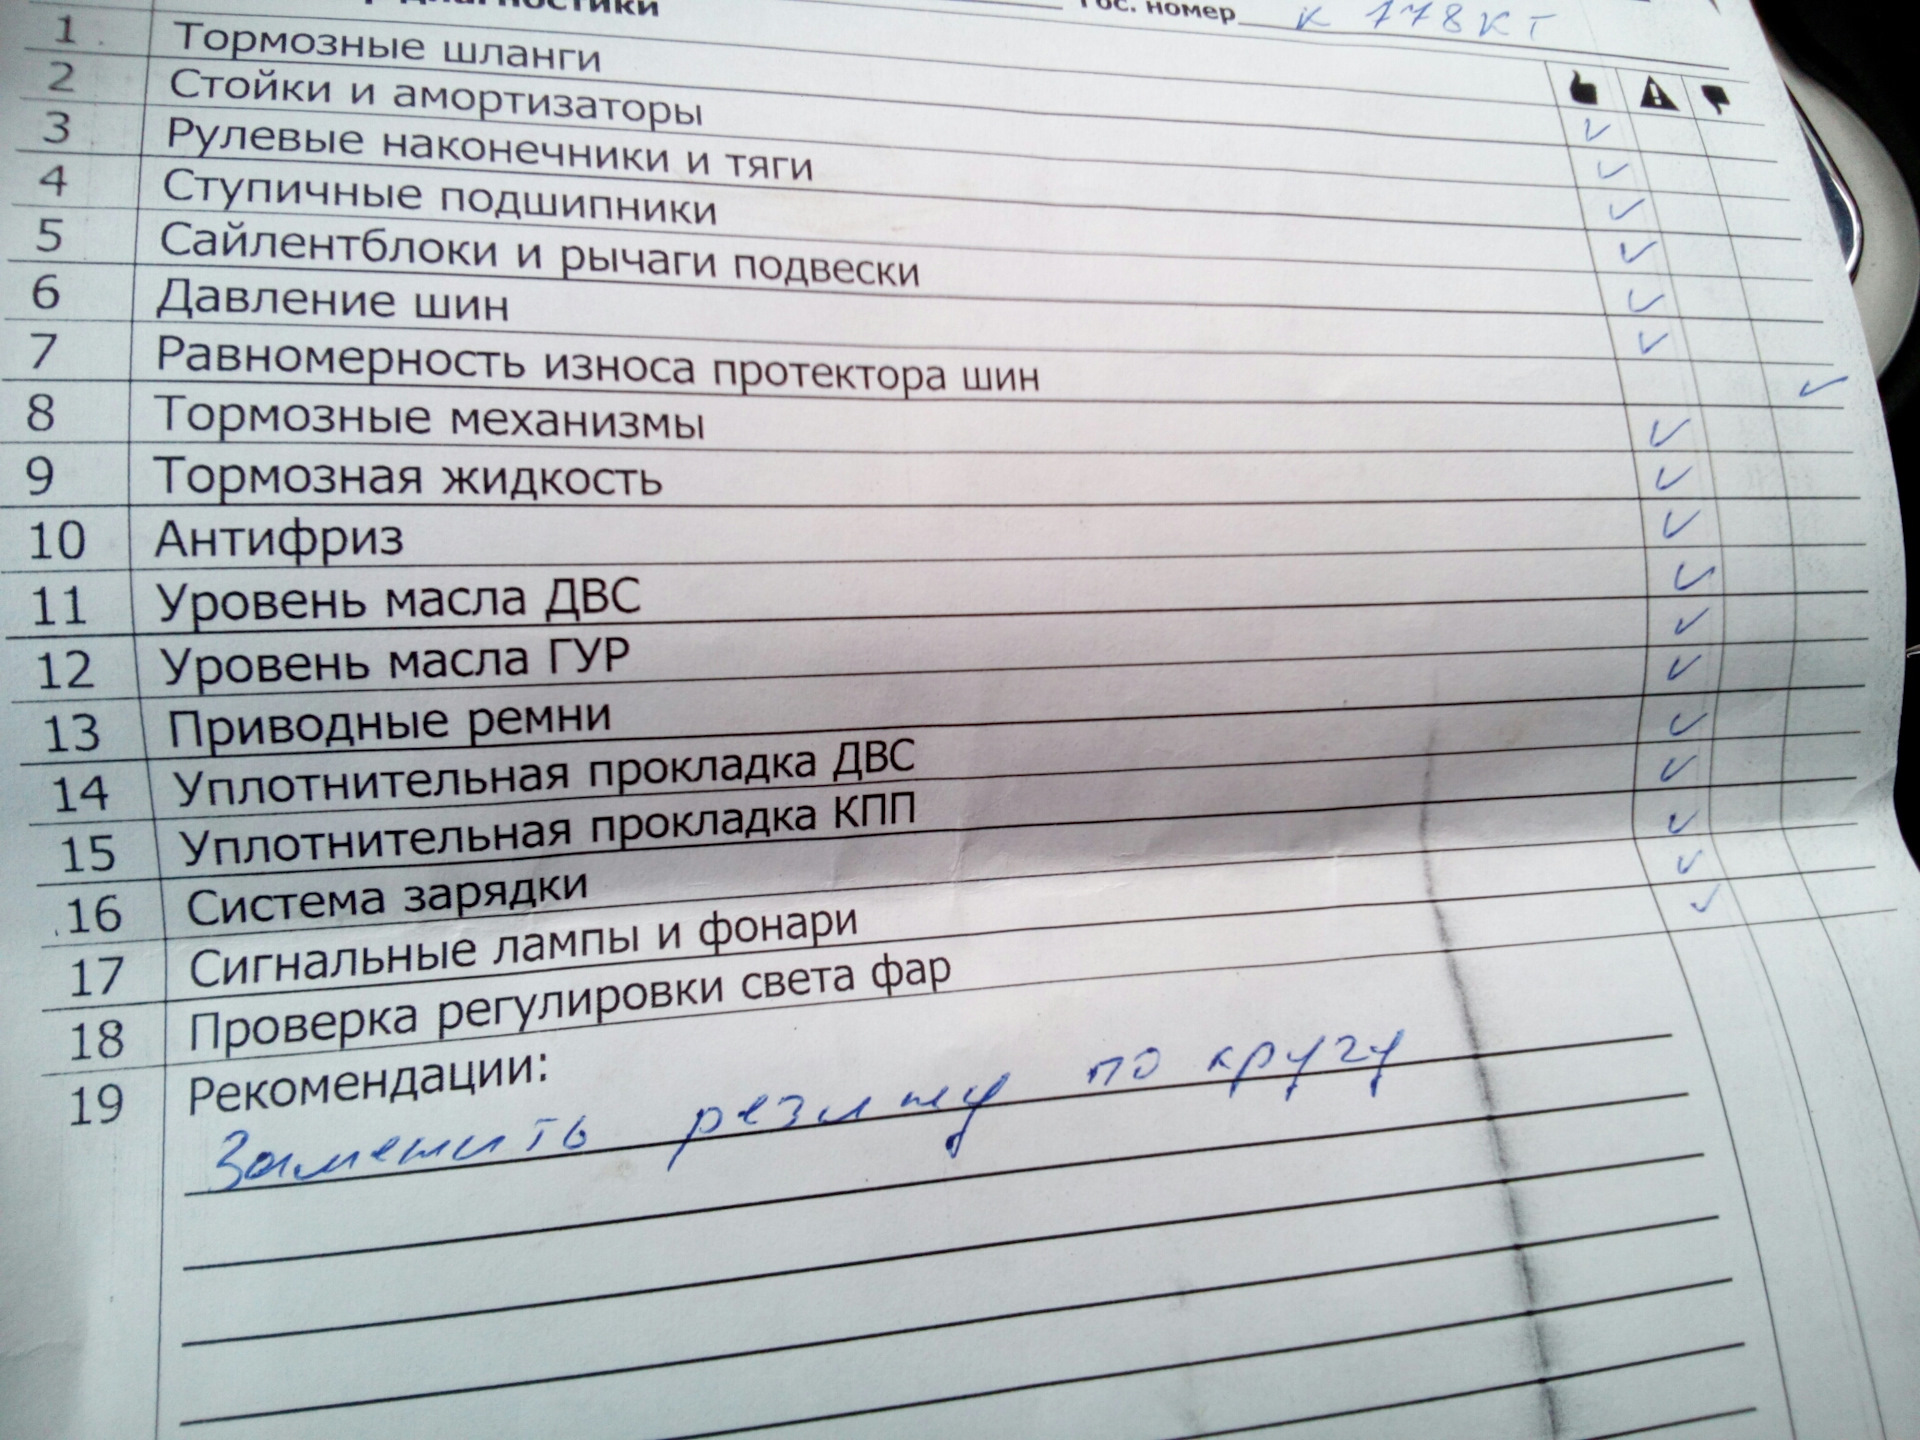 диагностики Гос. номер К 178 КТ
1 Тормозные шланги
2 Стойки и амортизаторы
3 Рулевые наконечники и тяги
4 Ступичные подшипники
5 Сайлентблоки и рычаги подвески
6 Давление шин
7 Равномерность износа протектора шин
8 Тормозные механизмы
9 Тормозная жидкость
10 Антифриз
11 Уровень масла ДВС
12 Уровень масла ГУР
13 Приводные ремни
14 Уплотнительная прокладка ДВС
15 Уплотнительная прокладка КПП
16 Система зарядки
17 Сигнальные лампы и фонари
18 Проверка регулировки света фар
19 Рекомендации:
Заменить резину по кругу